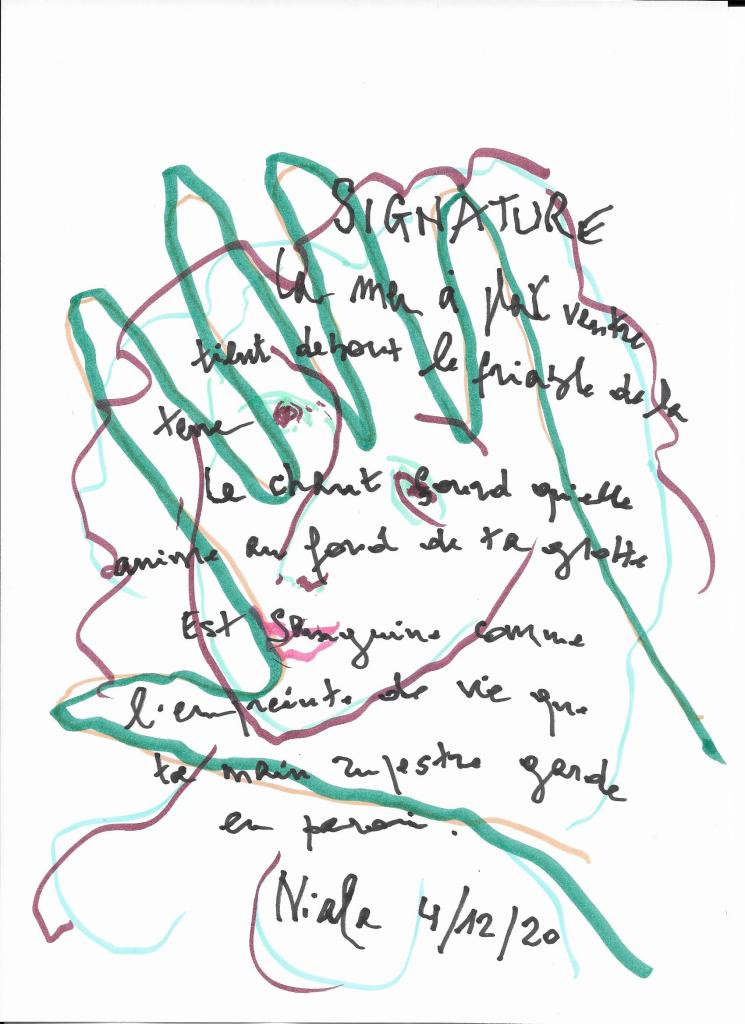 SIGNATURE
La mer à plat ventre
tient debout le friable de la
terre
Le chant sourd qu'elle
anime au fond de ta glotte
Est Sanguine comme
l'empreinte de vie que
ta main rupestre garde
en paroi.
Niala 4/12/20